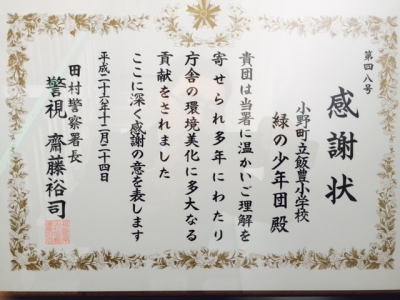 第四八号
感謝状
小野町立飯豊小学校
緑の少年団 殿
貴団は当署に温かいご理解を
寄せられ多年にわたり
庁舎の環境美化に多大なる
貢献をされました
ここに深く感謝の意を表します
平成二十六年十二月二十四日
田村警察署長
警視 齋藤裕司